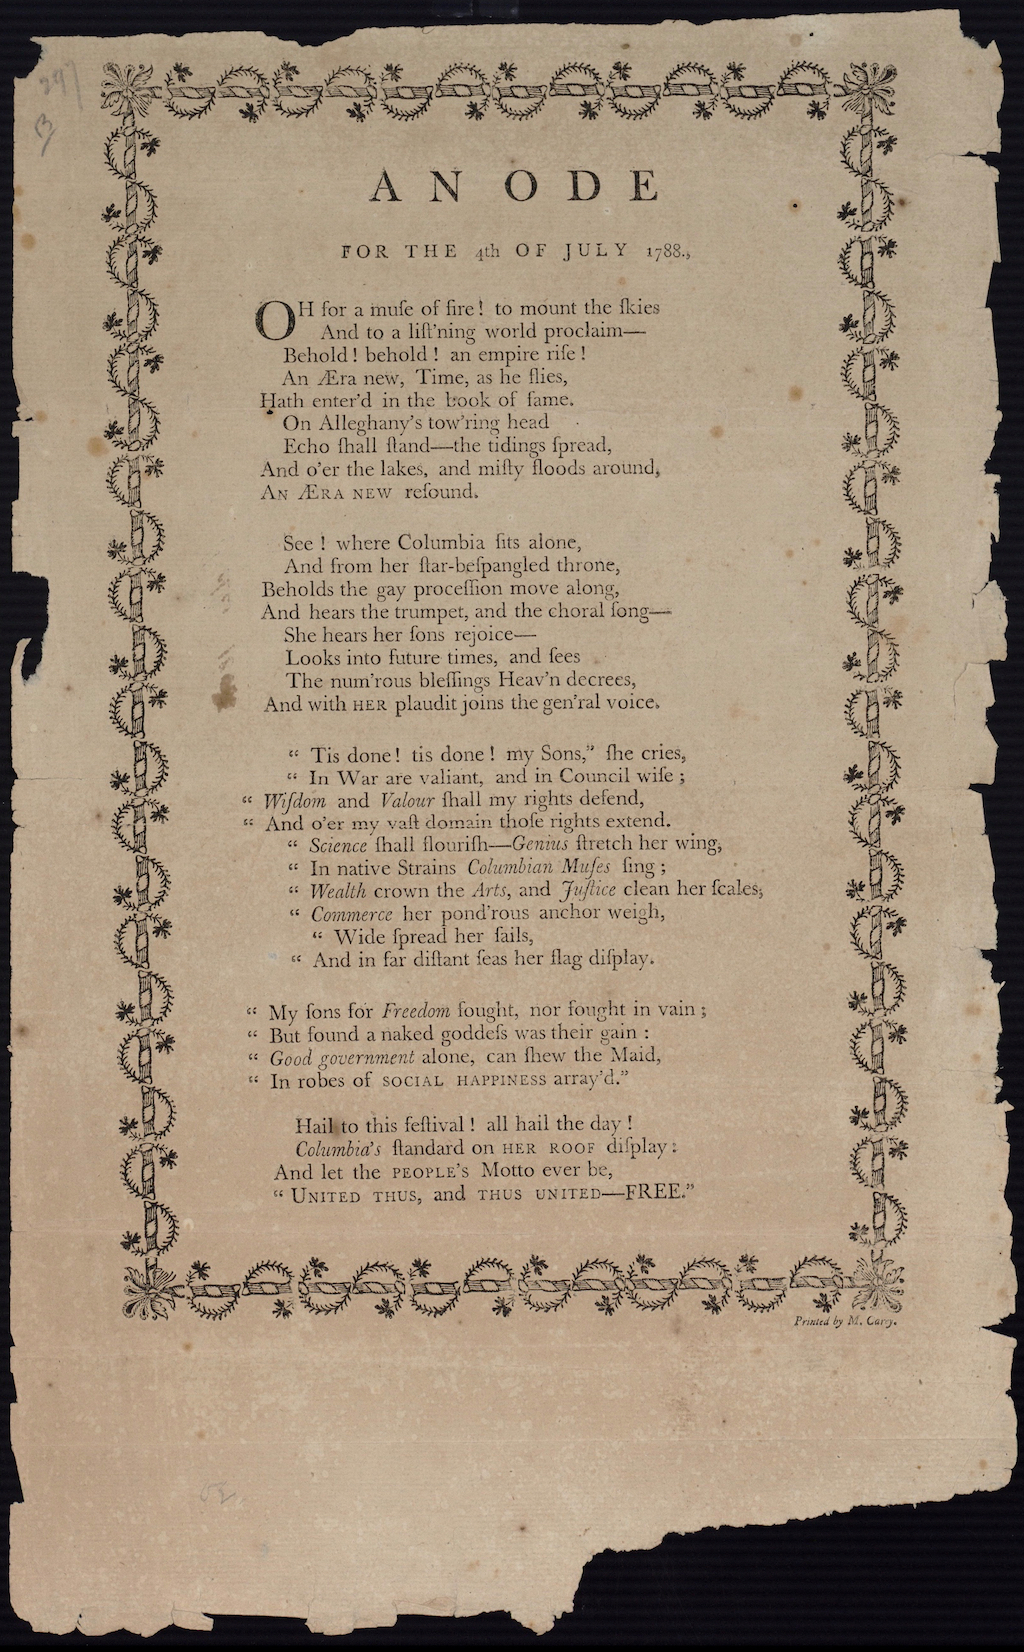 297
B
AN ODE
FOR THE 4th OF JULY 1788.,
OH for a muſe of fire! to mount the ſkies
And to a liſt'ning world proclaim—
Behold! behold! an empire riſe!
An Æra new, Time, as he flies,
Hath enter'd in the book of fame.
On Alleghany's tow'ring head
Echo ſhall ſtand—the tidings ſpread,
And o'er the lakes, and miſty floods around,
AN ÆRA NEW reſound.
See! where Columbia ſits alone,
And from her ſtar-beſpangled throne,
Beholds the gay proceſſion move along,
And hears the trumpet, and the choral ſong—
She hears her ſons rejoice—
Looks into future times, and ſees
The num'rous bleſſings Heav'n decrees,
And with HER plaudit joins the gen'ral voice.
“ Tis done! tis done! my Sons,” ſhe cries,
“ In War are valiant, and in Council wiſe;
“ Wiſdom and Valour ſhall my rights defend,
“ And o'er my vaſt domain thoſe rights extend.
“ Science ſhall flouriſh—Genius ſtretch her wing,
“ In native Strains Columbian Muſes ſing;
“ Wealth crown the Arts, and Juſtice clean her ſcales,
“ Commerce her pond'rous anchor weigh,
“ Wide ſpread her ſails,
“ And in far diſtant ſeas her flag diſplay.
“ My ſons for Freedom fought, nor fought in vain;
“ But found a naked goddeſs was their gain:
“ Good government alone, can ſhew the Maid,
“ In robes of SOCIAL HAPPINESS array'd.”
Hail to this feſtival! all hail the day!
Columbia's ſtandard on HER ROOF diſplay:
And let the PEOPLE'S Motto ever be,
“ UNITED THUS, and THUS UNITED—FREE.”
Printed by M. Carey.